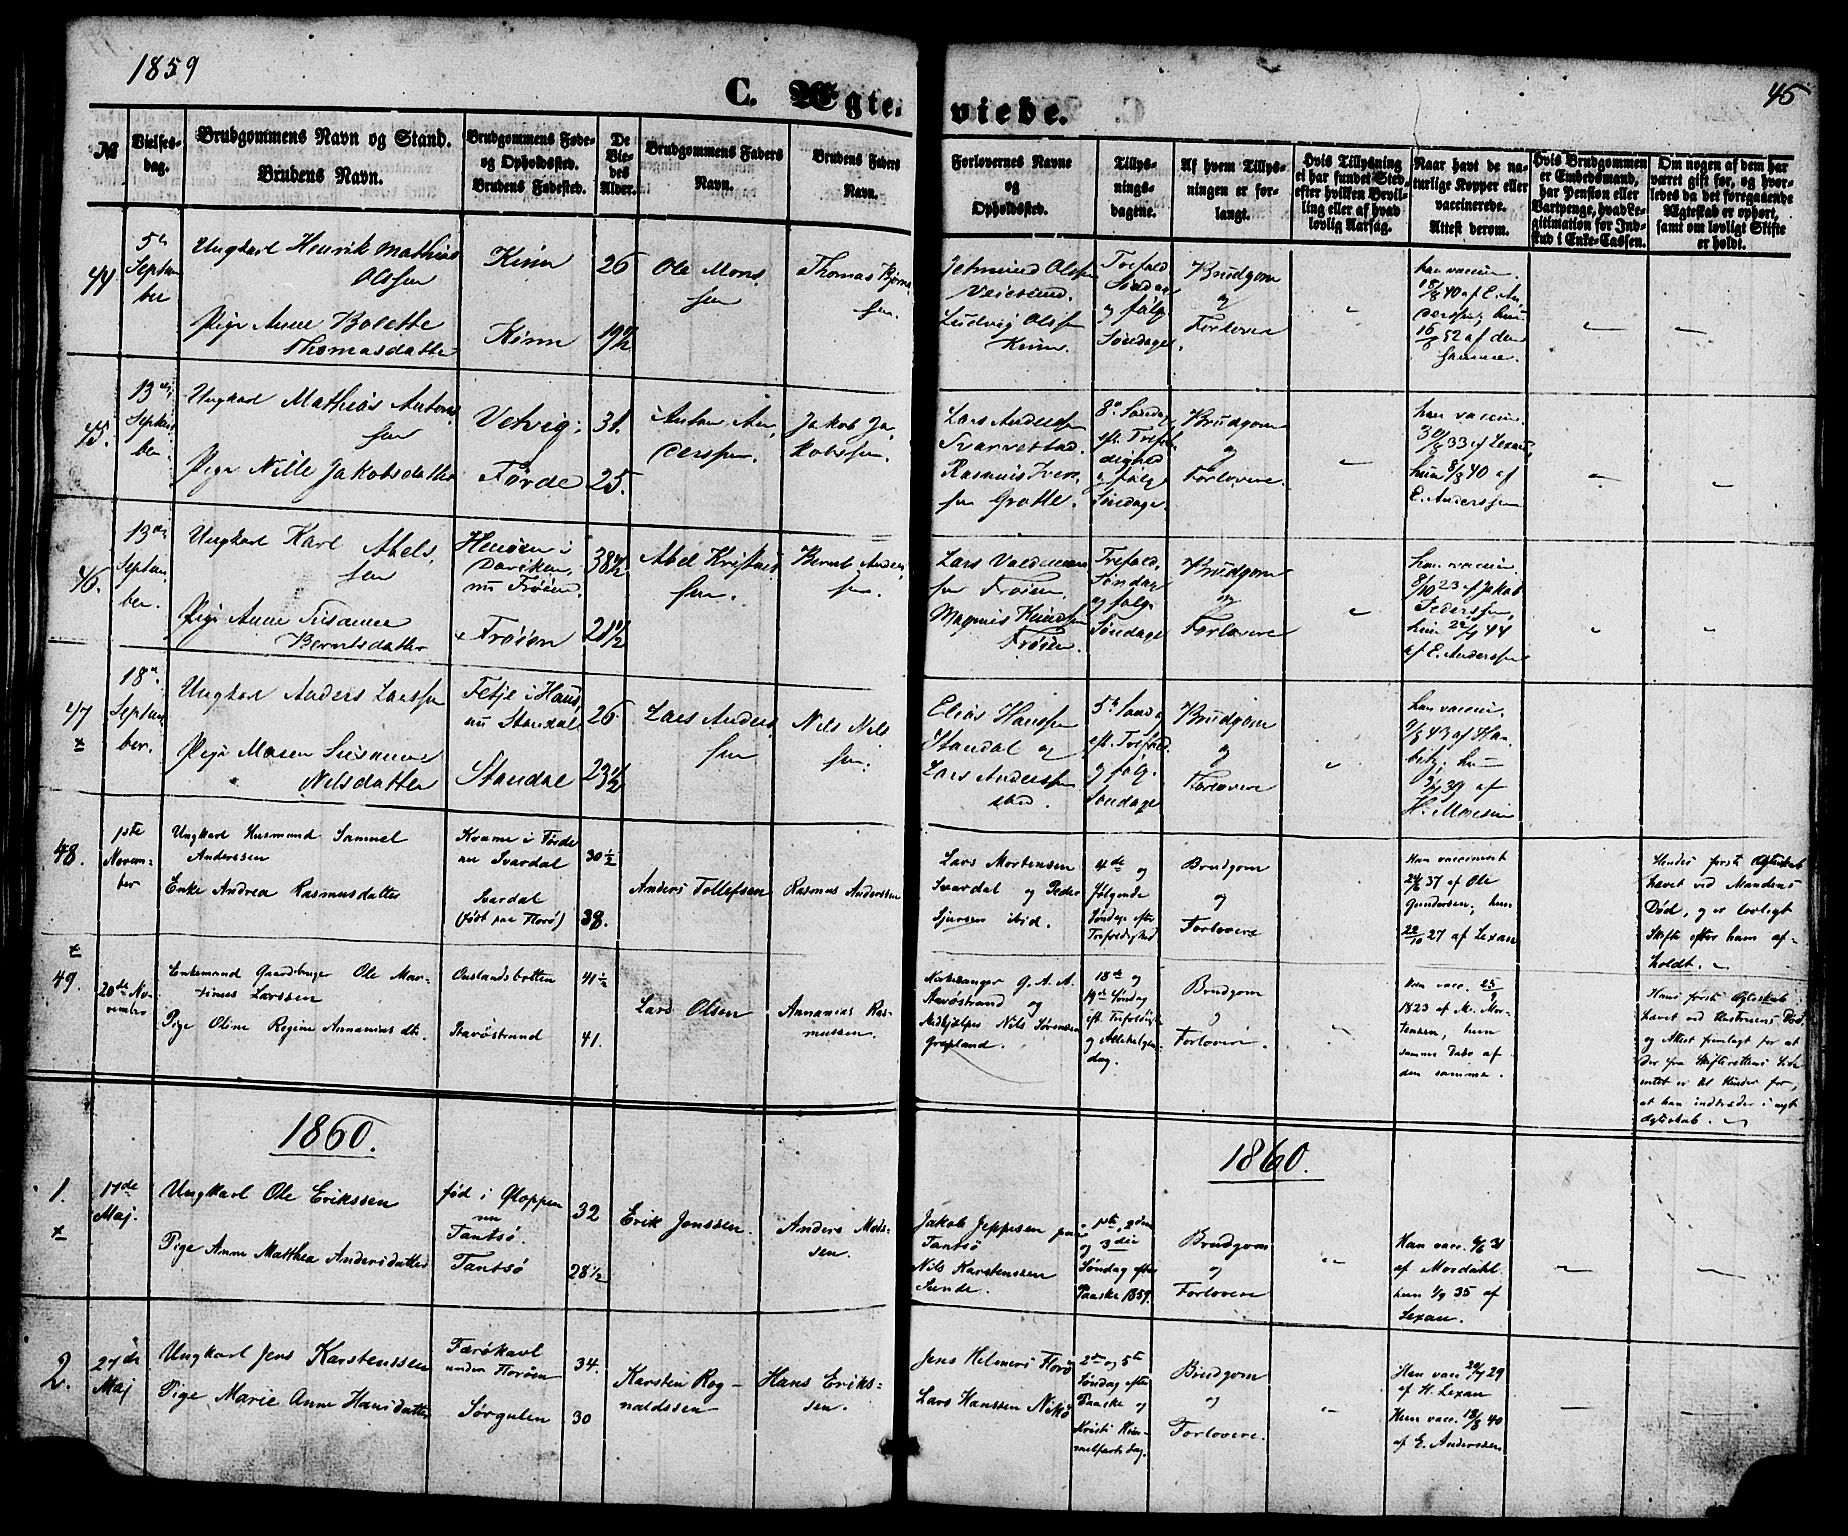 1859
45
C. Ægte.
viede.
№
Vielses-
dag.
Brudgommens Navn og Stand.
Brudens Navn.
Brudgommens Føde-
og Opholdssted.
Brudens Fødested.
De
Vie-
des
Alder.
Brudgommens Faders
Navn.
Brudens Faders
Navn.
Forlovernes Navne
og
Opholdssted.
Tillys-
nings-
dagene.
Af hvem Tillys-
ningen er for-
langt.
Hvis Tillysning
ei har fundet Sted,
efter hvilken Bevil-
ling eller af hvad
lovlig Aarsag.
Naar havt de na-
turlige Kopper eller
vaccinerede.
Attest derom.
Hvis Brudgommen
er Embedsmand,
har Pension eller
Vartpenge, hvad Le-
gitimation for Ind-
skud i Enke-Cassen.
Om nogen af dem har
været gift før, og hvor-
ledes da det foregaaende
Ægteskab er ophørt,
samt om lovligt Skifte
er holdt.
44
5te
Septem
ber
Ungkarl Henrik Mathias
Olssen
Pige Anne Bolette
Thomasdatter
Kinn
Kinn
26
19 1/2
Ole Mons
sen
Thomas Bjørn
sen.
Jetmund Olssen
Veiesund.
Ludvig Olssen
Kinn.
Trefold.
Søndag
og følg
Søndager
Brudgom
og
Forlovere
han vaccin.
18/8 40 af E. An,
derssen; hun
16/6 52 af den
samme.
45.
13de
Septem
ber.
Ungkarl Mathias Antons
sen
Pige Nille Jakobsdatter
Vetvig.
Førde
31.
25.
Anton An,
derssen.
Jakob Ja,
kobssen.
Lars Anderssen
Svarvestad.
Rasmus Iver
sen Grotle.
8de Søndag
eft. Trefol,
dighed
og følg
Søndage.
Brudgom
og
Forlovere.
han vaccin.
30/8 33 af Lexau
hun 8/8 40 af
E. Anderssen
46.
13de
Septem,
ber.
Ungkarl Karl Abels,
sen
Pige Anne Susanne
Berntsdatter
Henøen i
Daviken,
nu Frøien.
Frøien
38 1/2
21 1/2
Abel Kristens
sen.
Bernt Anders,
sen.
Lars Valdemar
sen Frøien,
Magnus
Frøien.
Trefold,
Søndag
og følg.
Søndage
Brudgom
og
Forlovere
han vaccin.
8/10 23 af Jakob
Pederssen,
hun 22/9 44
af E. Anderssen
47
18de
Septem
ber.
Ungkarl Anders Larssen
Pige Maren Susanne
Nilsdatter
Fetje i Haus,
nu Standal
Standal
26
23 1/2
Lars Anders,
sen
Nils Nils
sen.
Elias Hanssen
Standal og
Lars Anderssen
ibid.
5te Søndag
eft. Trefold.
og følg.
Søndage
Brudgom
og
Forlovere
han vaccin.
9/8 43 af Han
hun
39 af
48.
1ste
Novem-
ber
Ungkarl Husmand Samuel
Anderssen
Enke Andrea Rasmusdatter
Kvame i Førde
nu Svardal
Svardal
(født paa Florø)
30 1/2
38.
Anders Tollefsen
Rasmus Anderssen
Lars Mortensen
Svardal og Peder
Sjursen ibid.
4de og
følgende
Søndage efter
Trefoldighed
Brudgom
og
Forlovere
Han vaccineret
24/6 37 af Ole
Gundersen; hun
22/10 27 af Lexau
Hendes første Ægteskab
hævet ved Mandens
Død, og er lovligt
Skifte efter ham af-
holdt.
49.
20de No-
vember
Enkemand Gaardbruger Ole Mar-
tinus Larssen
Pige Oline Regine Annanias dtr.
Ouslandsbotten
Stavøstrand
41 1/2
41.
Lars Olsen
Annanias Ras-
mussen.
Kirkesanger G. A. A.
Stavøstrand og
Medhjælper Nils Sørensen
Grepland.
18de og
19de Søndag
eft. Trefoldigh
og Allehelgen-
dag.
Brudgom
og
Forlovere.
Han vacc. 25/9
1823 af M. Mor-
tensen, hun
samme Dato af
den samme.
Hans første Ægteskab
hævet ved Hustruens Død
og Attest fremlagt for at
der fra Skifterettens Side
intet er til Hinder for,
at han indtræder i nyt
Ægteskab.
1860.
1860.
1.
17de
Maj.
Ungkarl Ole Erikssen
Pige Anne Matthea Andersdatter
født i Gloppen
nu
Tantsø.
Tantsø
32
28 1/2
Erik Jonssen.
Anders Mads-
sen.
Jakob Jeppesen paa
Tantsø
Nils Karstenssen
Sunde.
1ste, 2den
og 3die
Søndag efter
Paaske 1859.
Brudgom
og
Forlovere
Han vacc. 6/6 31
af Mordahl.
hun 1/9 35 af
Lexau.
2.
27de
Maj
Ungkarl Jens Karstenssen
Pige Marie Anne Hansdatter
Færøkavl
under Florøen
Sørgulen
34.
30
Karsten Rog-
naldssen
Hans Eriks-
sen.
Jens Helmers Florø
Lars Hanssen Nekø
2den og 5te
Søndag efter
Paaske og
Kristi Him-
melfartsdag.
Brudgom
og
Forlovere.
Han vacc 20/9 29
af H. Lexau
Hun vacc. 18/8 40
af E. Anderssen